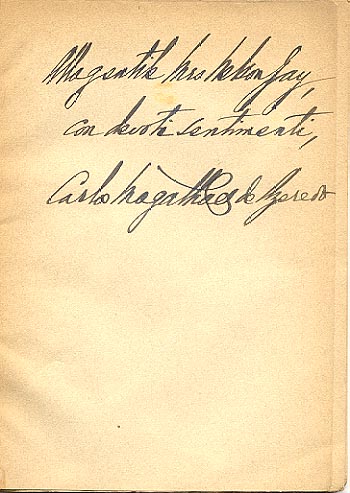 Alla gentile Mrs Nelson Gay,
con devoti sentimenti,
Carlo Magalhães de Azeredo